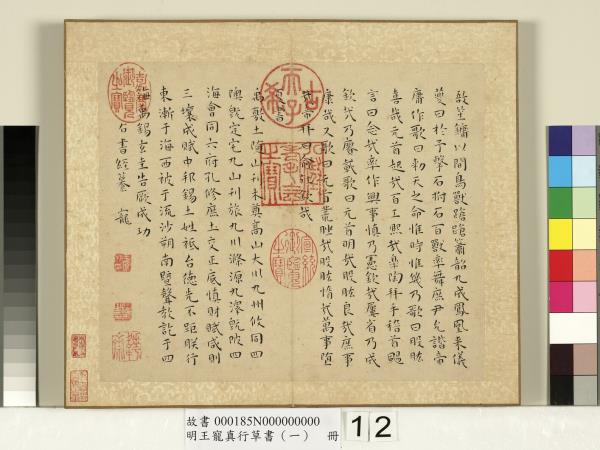 敔笙鏞以間鳥獸蹌蹌簫韶九成鳳凰来儀
夔曰於予擊石拊石百獸率舞庶尹允諧帝
庸作歌曰勑天之命惟時惟幾乃歌曰股肱
喜哉元首起哉百工熙哉皋陶拜手稽首颺
言曰念哉率作興事慎乃憲欽哉屢省乃成
欽哉乃賡載歌曰元首明哉股肱良哉庶事
康哉又歌曰元首叢脞哉股肱惰哉萬事墮
哉帝拜曰俞往欽哉
禹敷土隨山刊木奠高山大川九州攸同四
隩既宅九山刊旅九川滌源九澤既陂四
海會同六府孔修庶土交正底慎財賦咸則
三壤成賦中邦錫土姓祗台德先不距朕行
東漸于海西被于流沙朔南暨聲教訖于四
海禹錫玄圭告厥成功
右書經 寵
古希天子
乾隆御覽之寶
故書 000185N000000000
明王寵真行草書（一） 冊 12